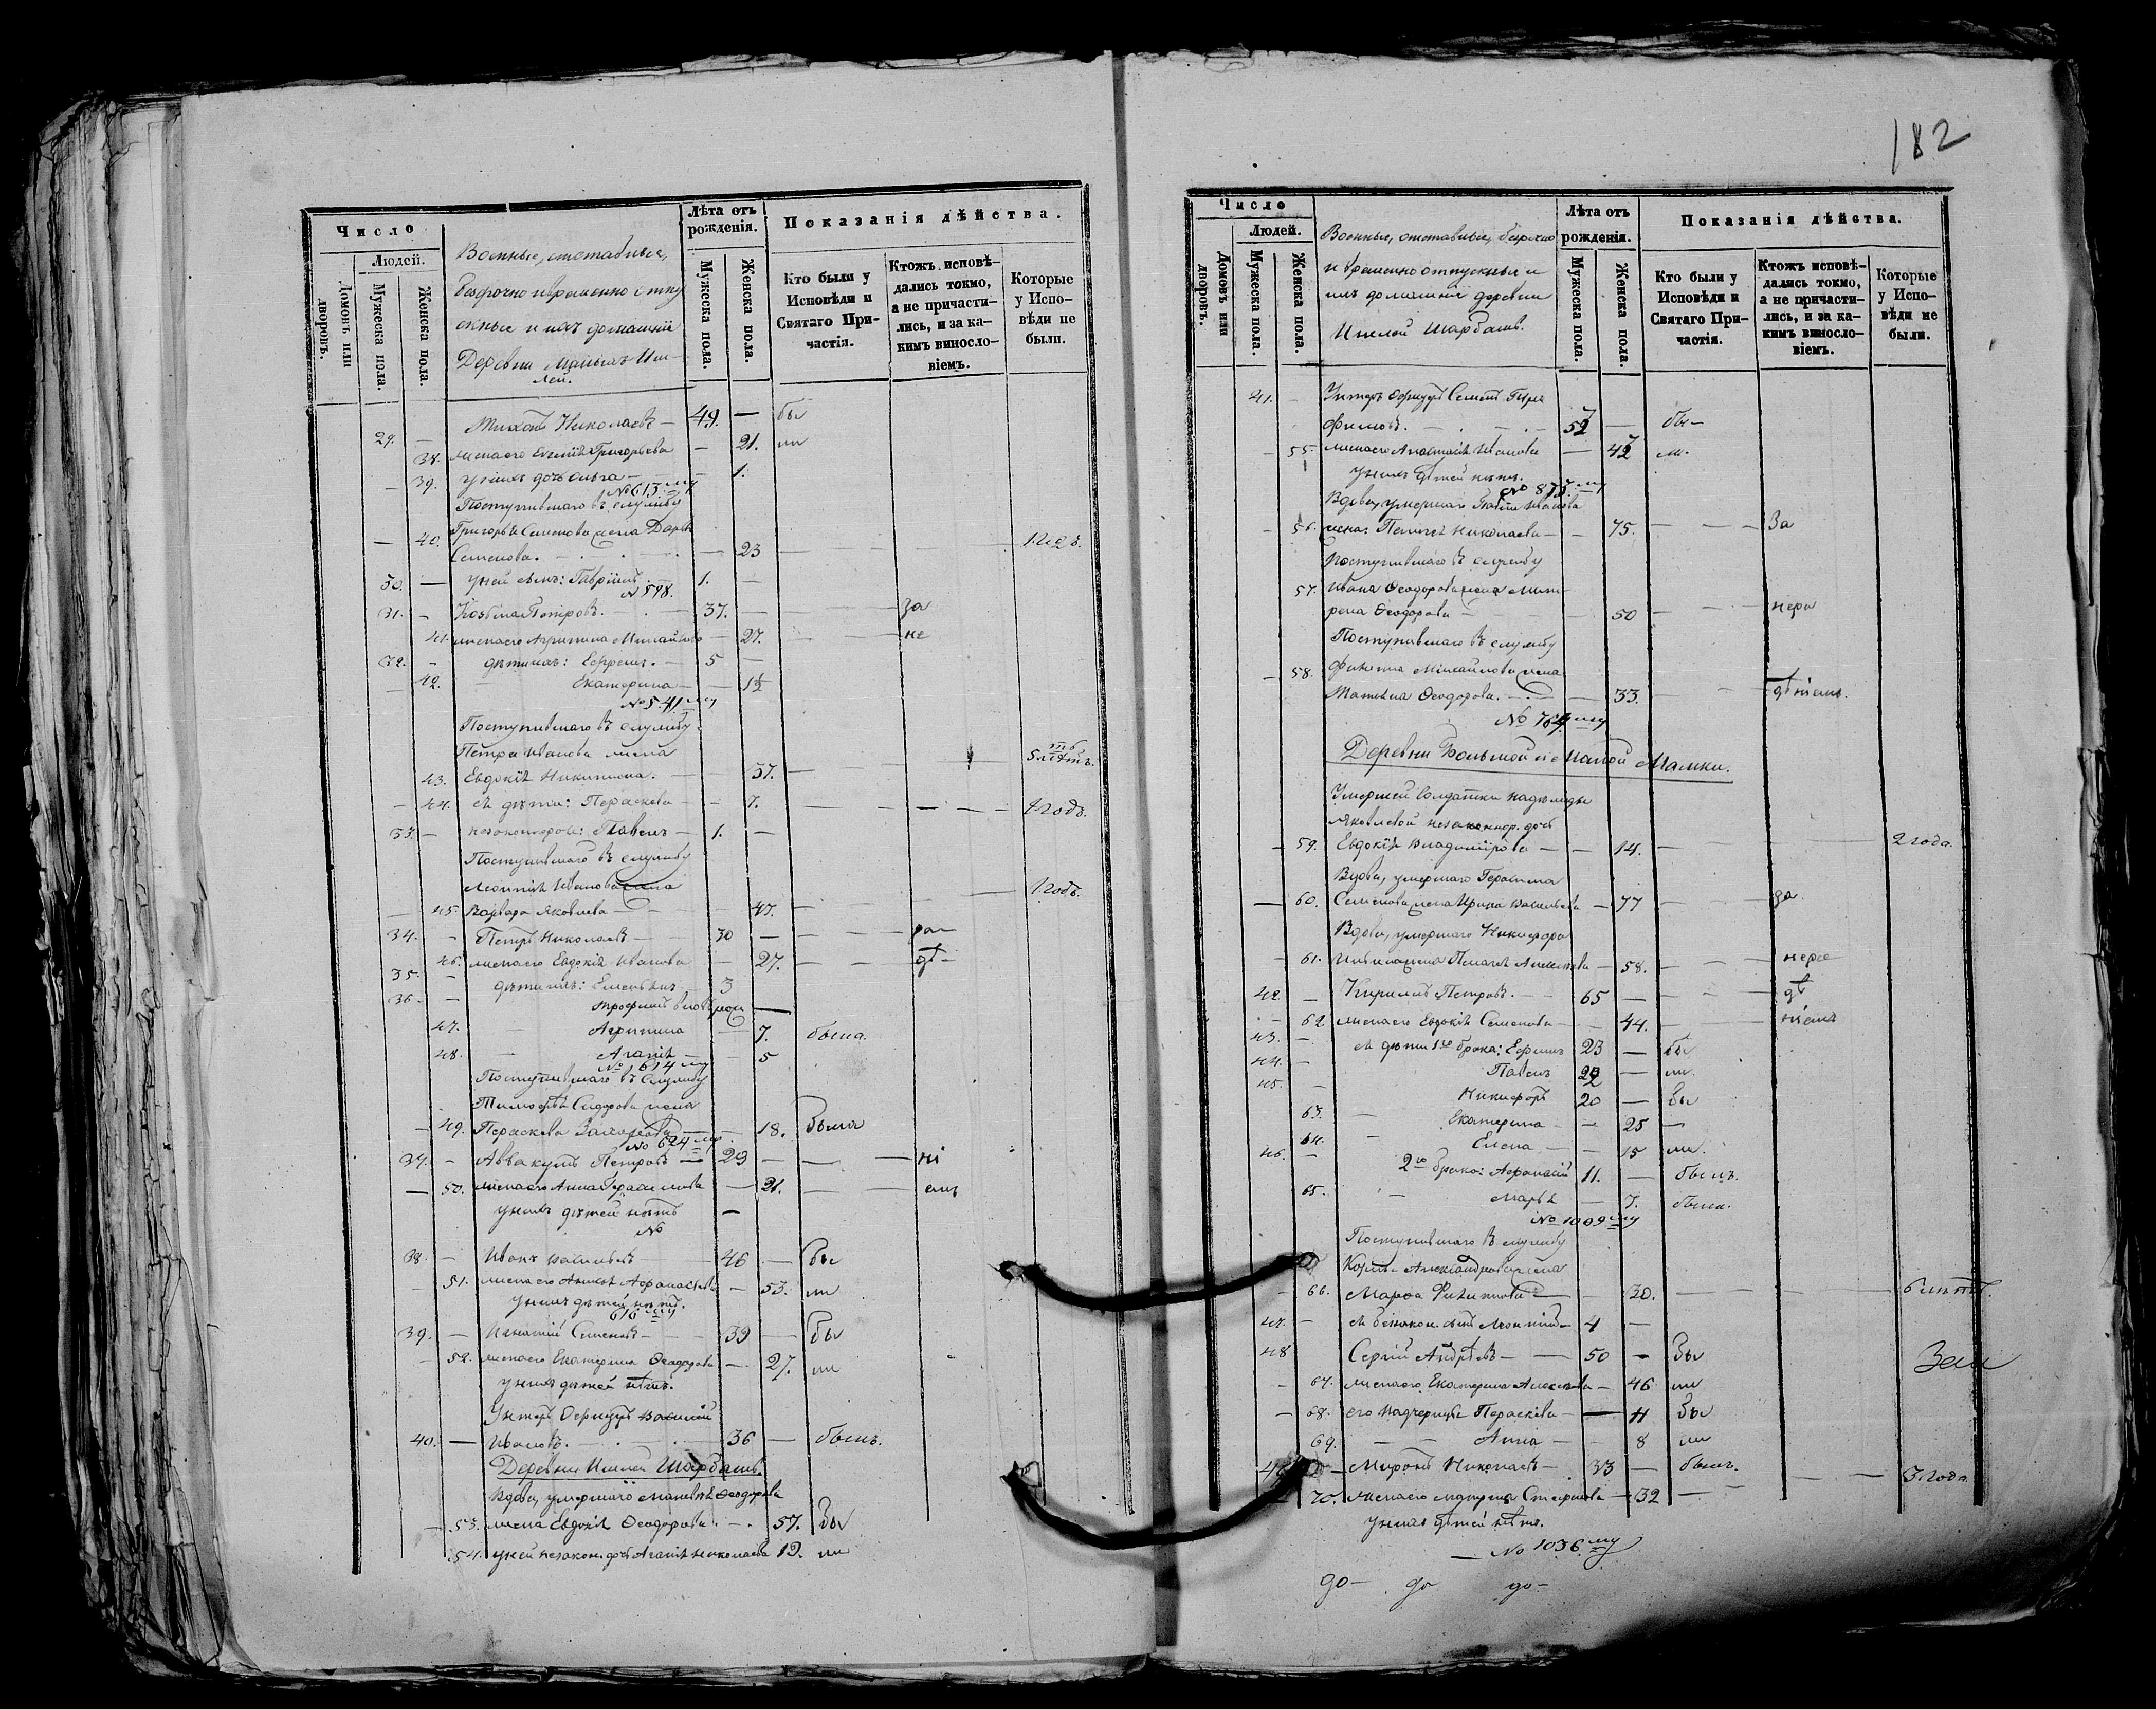 182
Число
Людей.
Домовъ или дворовъ.
Мужеска пола.
Женска пола.
Военные, отставные,
безсрочно и временно отпу
скные и ихъ домашніе
Деревни
лей.
Лѣта отъ рожденія.
Мужеска пола.
Женска пола.
Показанія дѣйства.
Кто были у Исповѣди и Святаго Причастія.
Ктожъ исповѣдались токмо, а не причастились, и за какимъ винословіемъ.
Которые у Исповѣди не были.
29. — Николаевъ — 49. — бы
38. жена его Григорьева — 21. ли
39. у нихъ дочь Ольга — 1.
№ 613 му
Поступившаго въ службу
40. Григорья Семенова жена Дарья
Семенова. — 23 1 годъ.
30. — у ней сынъ: Гавріилъ 1. —
№ 598.
31. — Козьма Петровъ. — 37. — за
41. жена его Агрипина Михайлова — 27. не
32. — дѣти ихъ: Ефремъ. — 5 —
42. Екатерина — 1½
№ 541 му
Поступившаго въ службу
Петра Иванова жена
43. Евдокія Никитина. — 37. — 5 лѣтъ.
44. ея дѣти: Параскева — 7. 1 годъ.
33. — незаконнорож: Павелъ — 1. —
Поступившаго въ службу
Леонтія Иванова жена
45. Варвара Яковлева — 47. 1 годъ.
34. — Петръ Николаевъ — 30 — ра
46. жена его Евдокія Иванова — 27. дѣ
35. — дѣти ихъ: — 3
36. — Трофимъ —
47. — Агрипина — 7. была.
48. — Агапія — 5
№ 614 му
Поступившаго въ службу
Тимофея Сидорова жена
49. Параскева Захарова — 18. была
№ 624 му
37. — Аввакумъ Петровъ — 29 — ні
50. жена его Анна Герасимова — 21. емъ
у нихъ дѣтей нѣтъ —
№
38. — Иванъ Васильевъ — 46 — бы
51. жена его Афанасьева — 53. ли
у нихъ дѣтей нѣтъ.
616 му
39. — Игнатій Семеновъ — 39 — бы
52. жена его Екатерина Ѳеодорова — 27. ли
у нихъ дѣтей нѣтъ.
Унтеръ Офицеръ Василій
40. — Ивановъ. 36 — былъ.
Деревни Ишлей Шарбашъ.
Вдова, умершаго Матвѣя Ѳеодорова
53. жена Евдокія Ѳеодорова. — 57. бы
54. у ней незакон. дочь Агапія Николаева 19. ли
Число
Людей.
Домовъ или дворовъ.
Мужеска пола.
Женска пола.
Военные, отставные, безсрочно
и временно отпускные и
ихъ домашніе деревни
Ишлей Шарбашъ.
Лѣта отъ рожденія.
Мужеска пола.
Женска пола.
Показанія дѣйства.
Кто были у Исповѣди и Святаго Причастія.
Ктожъ исповѣдались токмо, а не причастились, и за какимъ винословіемъ.
Которые у Исповѣди не были.
41. — Унтеръ Офицеръ
филовъ. — — бы
55. жена его Анастасія Иванова — ли.
у нихъ дѣтей нѣтъ.
№ 875 му
Вдова, умершаго Иванова
56. жена: Пелагея Николаева — 75. — За
Поступившаго въ службу
57. Ивана Ѳеодорова жена Мат
рена Ѳеодорова — 50 нера
Поступившаго въ службу
58. Филиппа Михайлова жена
Татьяна Ѳеодорова. — 33. дѣніемъ.
№ 764 му
Деревни Большой и Малой Мамки.
Умершей солдатки Надежды
Яковлевой незаконнор. дочь
59. Евдокія Владимірова — 14. 2 года.
Вдова, умершаго Герасима
60. Семенова жена Ирина Васильева — 77 за
Вдова, умершаго Никифора
61. жена Пелагея Алексѣева — 58. нера
42. — Кирилъ Петровъ. 65 — дѣ
62. жена его Евдокія Семенова — 44. ніемъ
43. — ея дѣти 1го брака: Ефимъ 23 — бы
44. — Павелъ — ли.
45. — Никифоръ 20 — бы
63. — Екатерина — 25 —
64. — Елена — 15 ли.
46. — 2го брака: Афанасій 11. — былъ.
65. — Марья — 7. была.
№ 1009 му
Поступившаго въ службу
Александрова жена
66. Марѳа Филиппова — 30. 6 лѣтъ.
47. — ея незакон. сынъ Леонтій 4 —
48 Сергій Андреевъ — 50 — Бы
67. жена его Екатерина Алексѣева — 46 ли
68. его падчерицы Параскева — 11 Бы
69. — Анна — 8 ли
Миронъ Николаевъ — 33 — былъ.
70. жена его Матрена Степанова — 32 — 3 года.
у нихъ дѣтей нѣтъ.
— № 1036 му
до — до до —